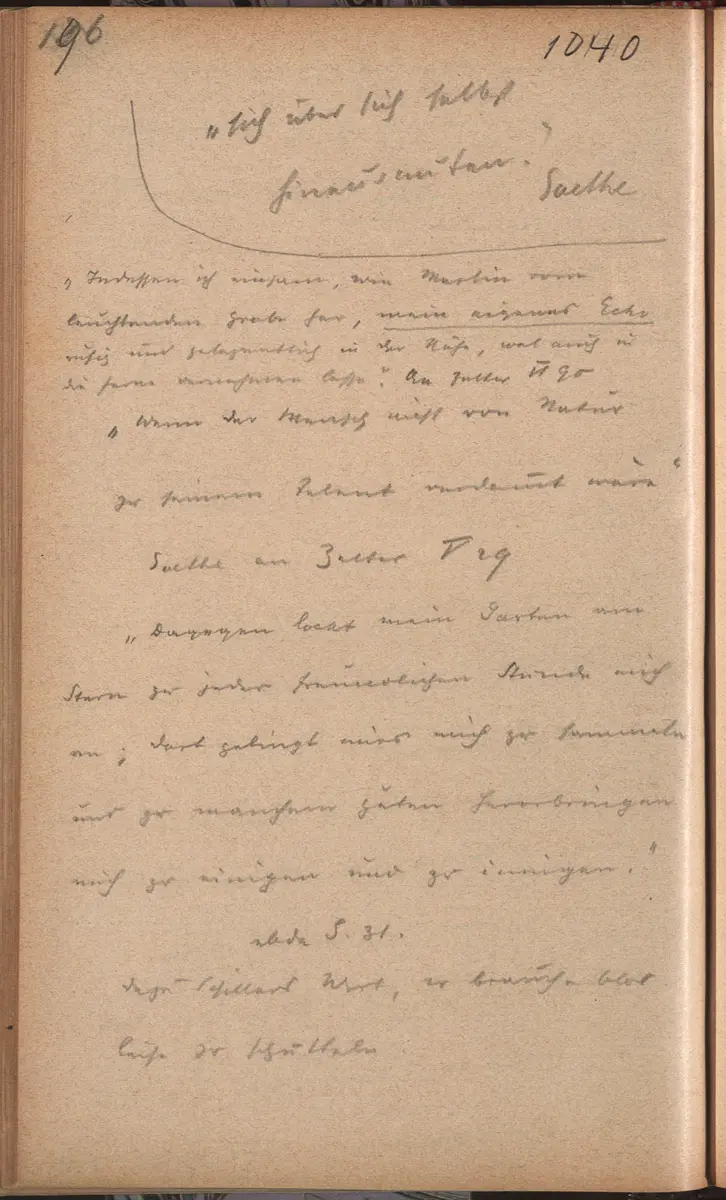 196
1040
„sich über sich selbst
hinausmuten."
Goethe
„Indessen ich einsam, wie Merlin vom
leuchtenden Grabe her, mein eigenes Echo
ruhig und gelegentlich in der Nähe, wol auch in
die Ferne vernehmen lasse". An Zelter VI 90
„Wenn der Mensch nicht von Natur
zu seinem Talent verdammt wäre"
Goethe an Zelter V 29
„Dagegen lockt mein Garten am
Stern zu jeder freundlichen Stunde mich
an; dort gelingt mirs mich zu sammeln
und zu manchem guten Hervorbringen
mich zu einigen und zu innigen."
ebda S. 31.
dazu Schillers Wort, er brauche blos
leise zu schütteln